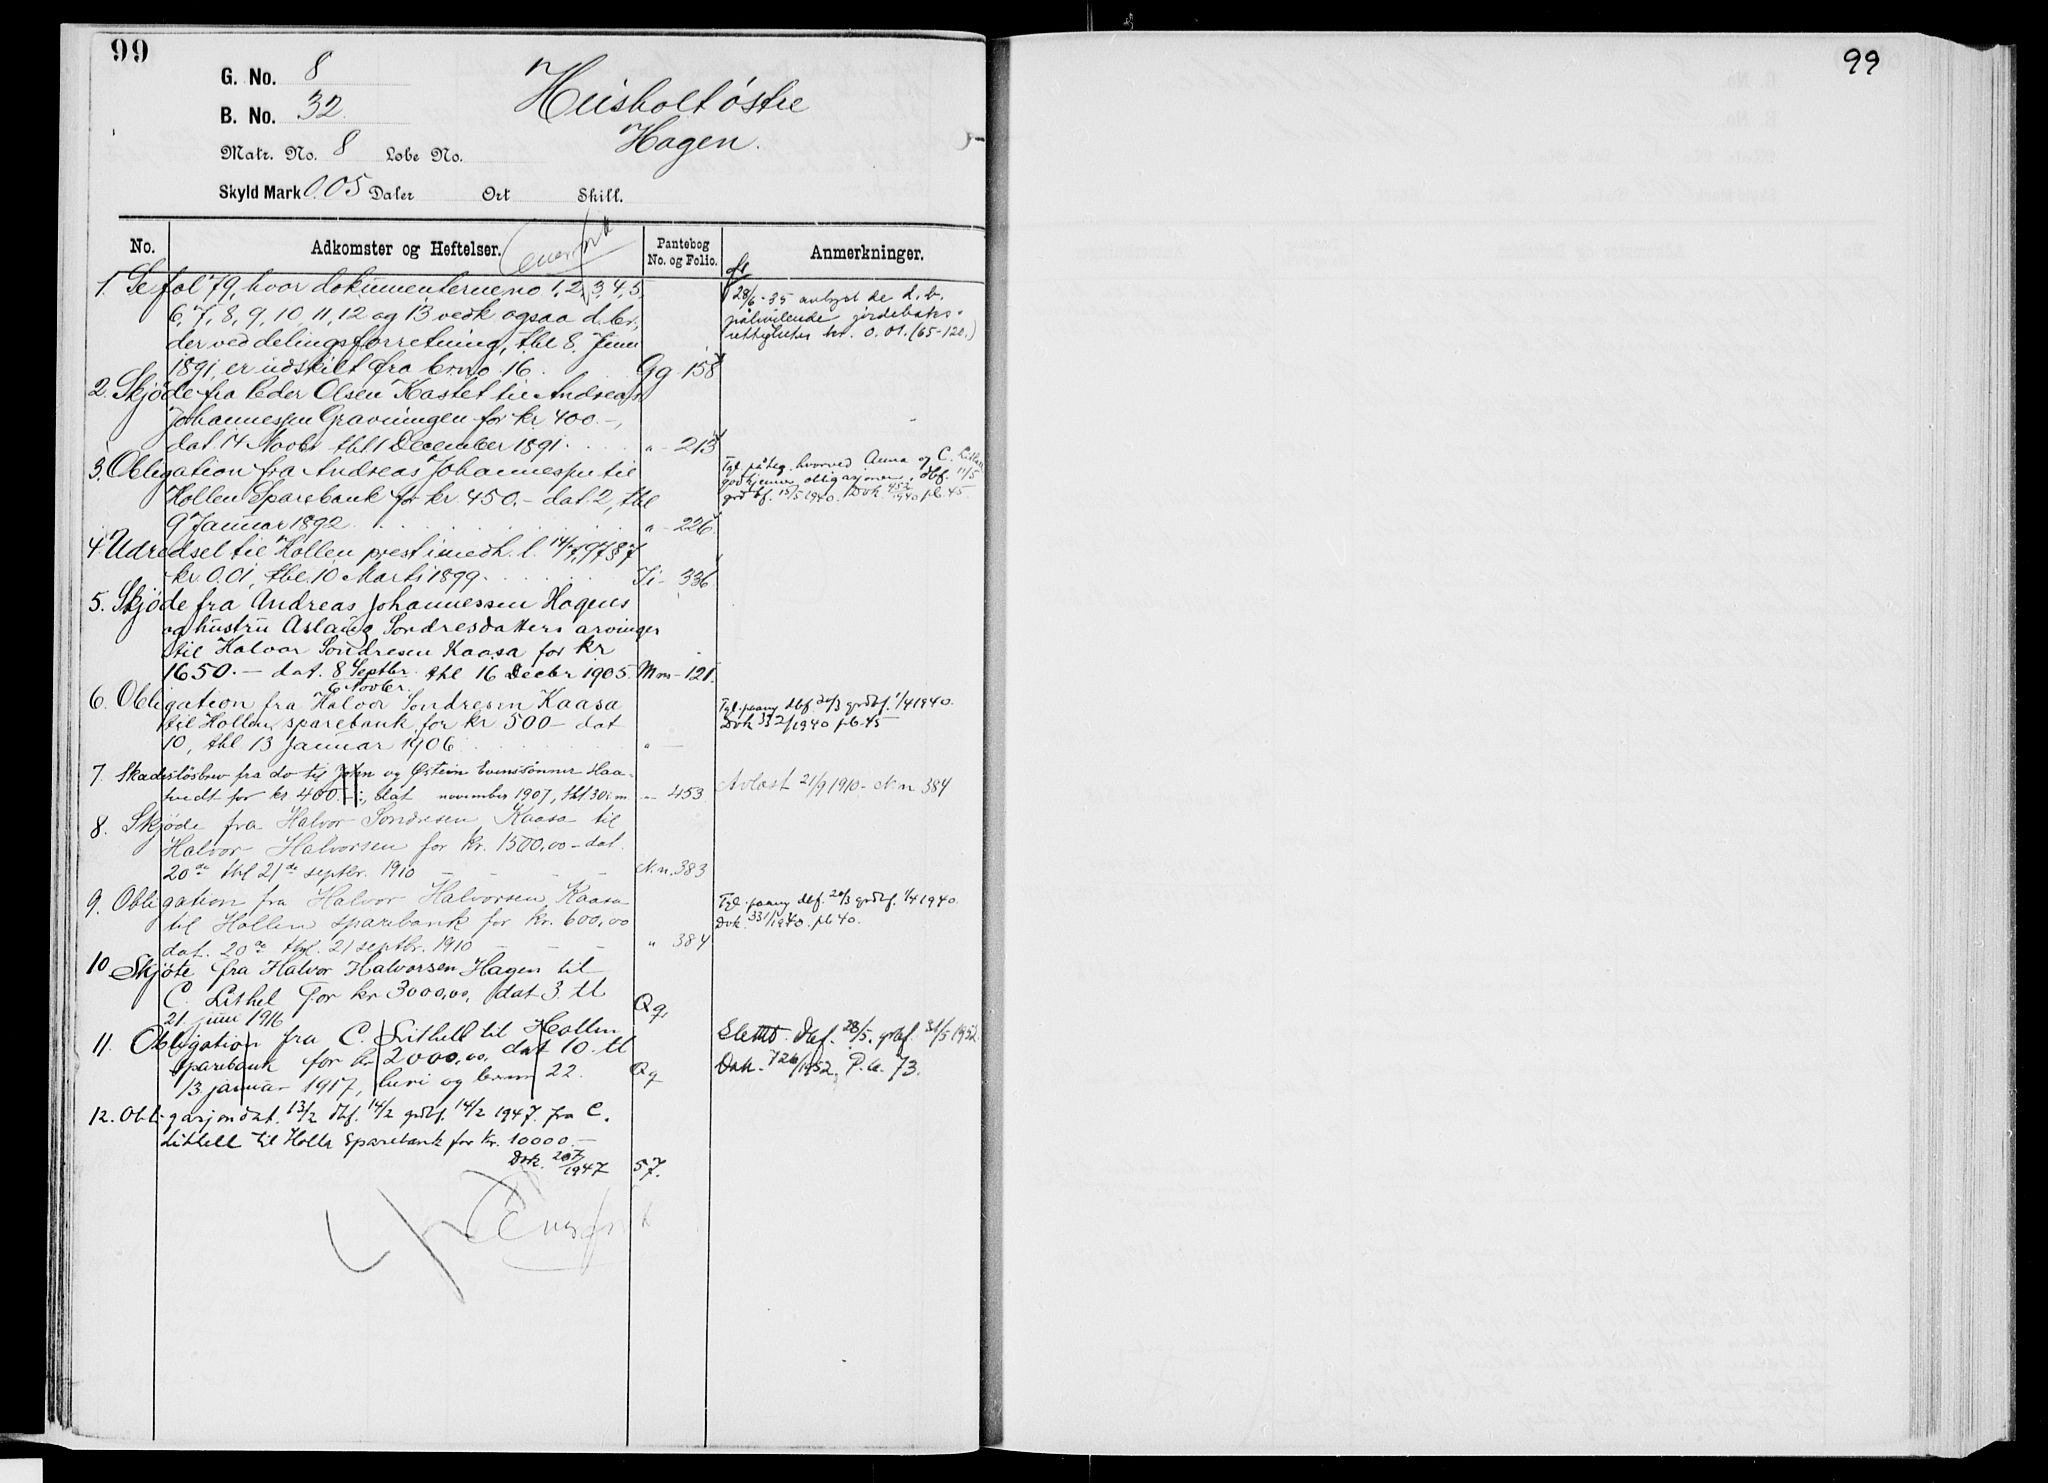 99
G. No. 8
B. No. 32
Heisholt østre
Hagen.
Matr. No. 8 Løbe No.
Skyld Mark 0.05 Daler Ort Skill.
No. Adkomster og Heftelser. Pantebog No. og Folio. Anmerkninger.
Overført
1. Se fol 79, hvor dokumenterne no 1, 2, 3, 4, 5,
6, 7, 8, 9, 10, 11, 12 og 13 vedk ogsaa d. br.,
der ved delingsforretning, tbl 8. Juni
1891, er udskilt fra brno 16. Gg 158
28/6-35 avlyst de d. b.
påhvilende jordeboks-
rettigheter kr. 0.01. (65-120.)
2. Skjøde fra Peder Olsen Kastet til Andreas
Johannessen Gravningen for kr 400.-,
dat 14 Novbr tbl 1 December 1891. " - 213
3. Obligation fra Andreas Johannessen til
Hollen Sparebank for kr. 450.- dat. 2, tbl
9 Januar 1892 " - 226
Tgl. påteg. hvorved Anna og C. Lithell
godkjenner obligasjonen, dbf. 11/5
grdbf. 15/5 1940. Dok 452/1940 pb. 45.
4. Udredsel til Hollen prest i medh. l. 14/7, 97 § 7
kr. 0.01, tbl. 10 Marts 1899. Ii - 336
5. Skjøde fra Andreas Johannessen Hagens
og hustru Aslaug Sondresdatters arvinger
til Halvor Sondresen Kaasa for kr
1650.- dat. 8 Septbr. tbl 16 Decbr 1905. Mm - 121.
6 Novbr.
6. Obligation fra Halvor Sondresen Kaasa
til Hollen sparebank for kr 500 - dat
10, tbl 13 Januar 1906 " -
Tgl. paany dbf. 20/3 grdbf. 1/4 1940.
Dok 332/1940 pb. 45
7. Skadesløsbrev fra do til John og Østein Evenssønner Haa-
tvedt for kr 400.-, dat november 1907, tbl 30 s.m. " - 453
Avløst 21/9 1910 - N.n 384
8. Skjøde fra Halvor Sondresen Kaasa til
Halvor Halvorsen for kr. 1500,00 - dat.
20de tbl 21de septbr. 1910 - - - - N.n. 383
9. Obligation fra Halvor Halvorsen Kaasa
til Hollen sparebank for kr. 600,00
dat. 20de tbl. 21 septbr. 1910 - - - " 384
Tgl. paany dbf. 20/3 grdbf. 1/4 1940.
Dok. 331/1940. pb 40.
10 Skjøte fra Halvor Halvorsen Hagen til
C. Lithel for kr 3000,00, dat 3. tl
21. juni 1916 Qq
11. Obligation fra C. Lithell til Hollen
sparebank for kr 2000,00, dat 10. tl
13 januar 1917, heri og brno 22. Qq
Slettet. dbf. 28/5, grbf. 31/5 1952.
Dok. 726/1952, P.b. 73.
12. Obligasjon dat. 13/2 dbf. 14/2 grdbf. 14/2 1947 fra C.
Lithell til Holla Sparebank for kr. 10000.-
Dok. 207/1947 57.
Overført
99